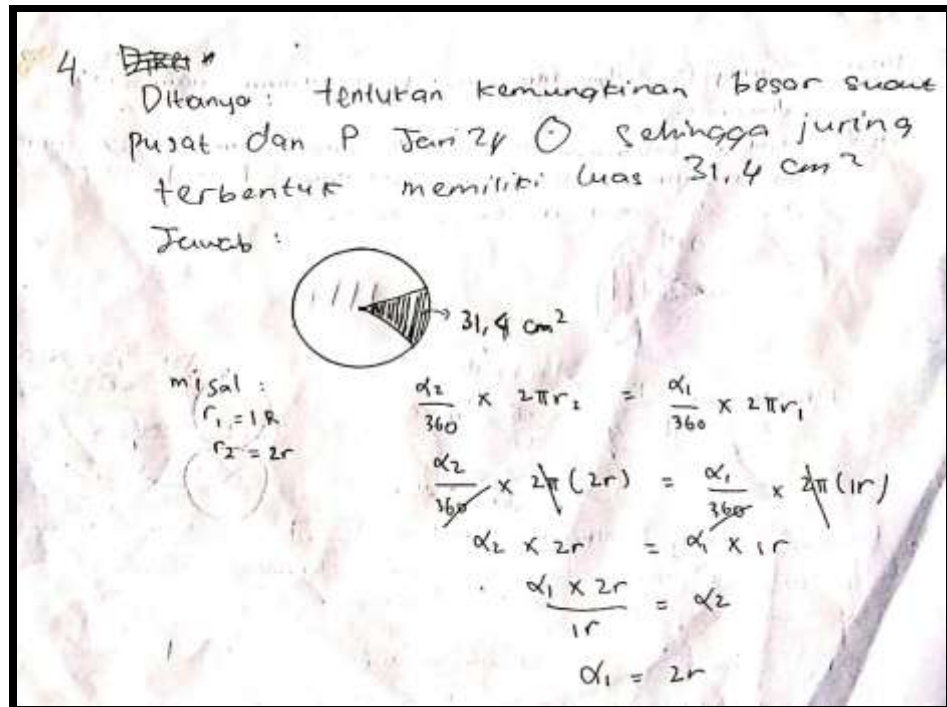 4.
Ditanya : tentukan kemungkinan besar sudut
pusat dan P Jari2r ⊙ sehingga juring
terbentuk memiliki luas 31,4 cm²
Jawab :
31,4 cm²
misal :
r₁ = 1R
r₂ = 2r
α₂/360 × 2πr₂ = α₁/360 × 2πr₁
α₂/360 × 2π(2r) = α₁/360 × 2π(1r)
α₂ × 2r = α₁ × 1r
α₁ × 2r / 1r = α₂
α₁ = 2r